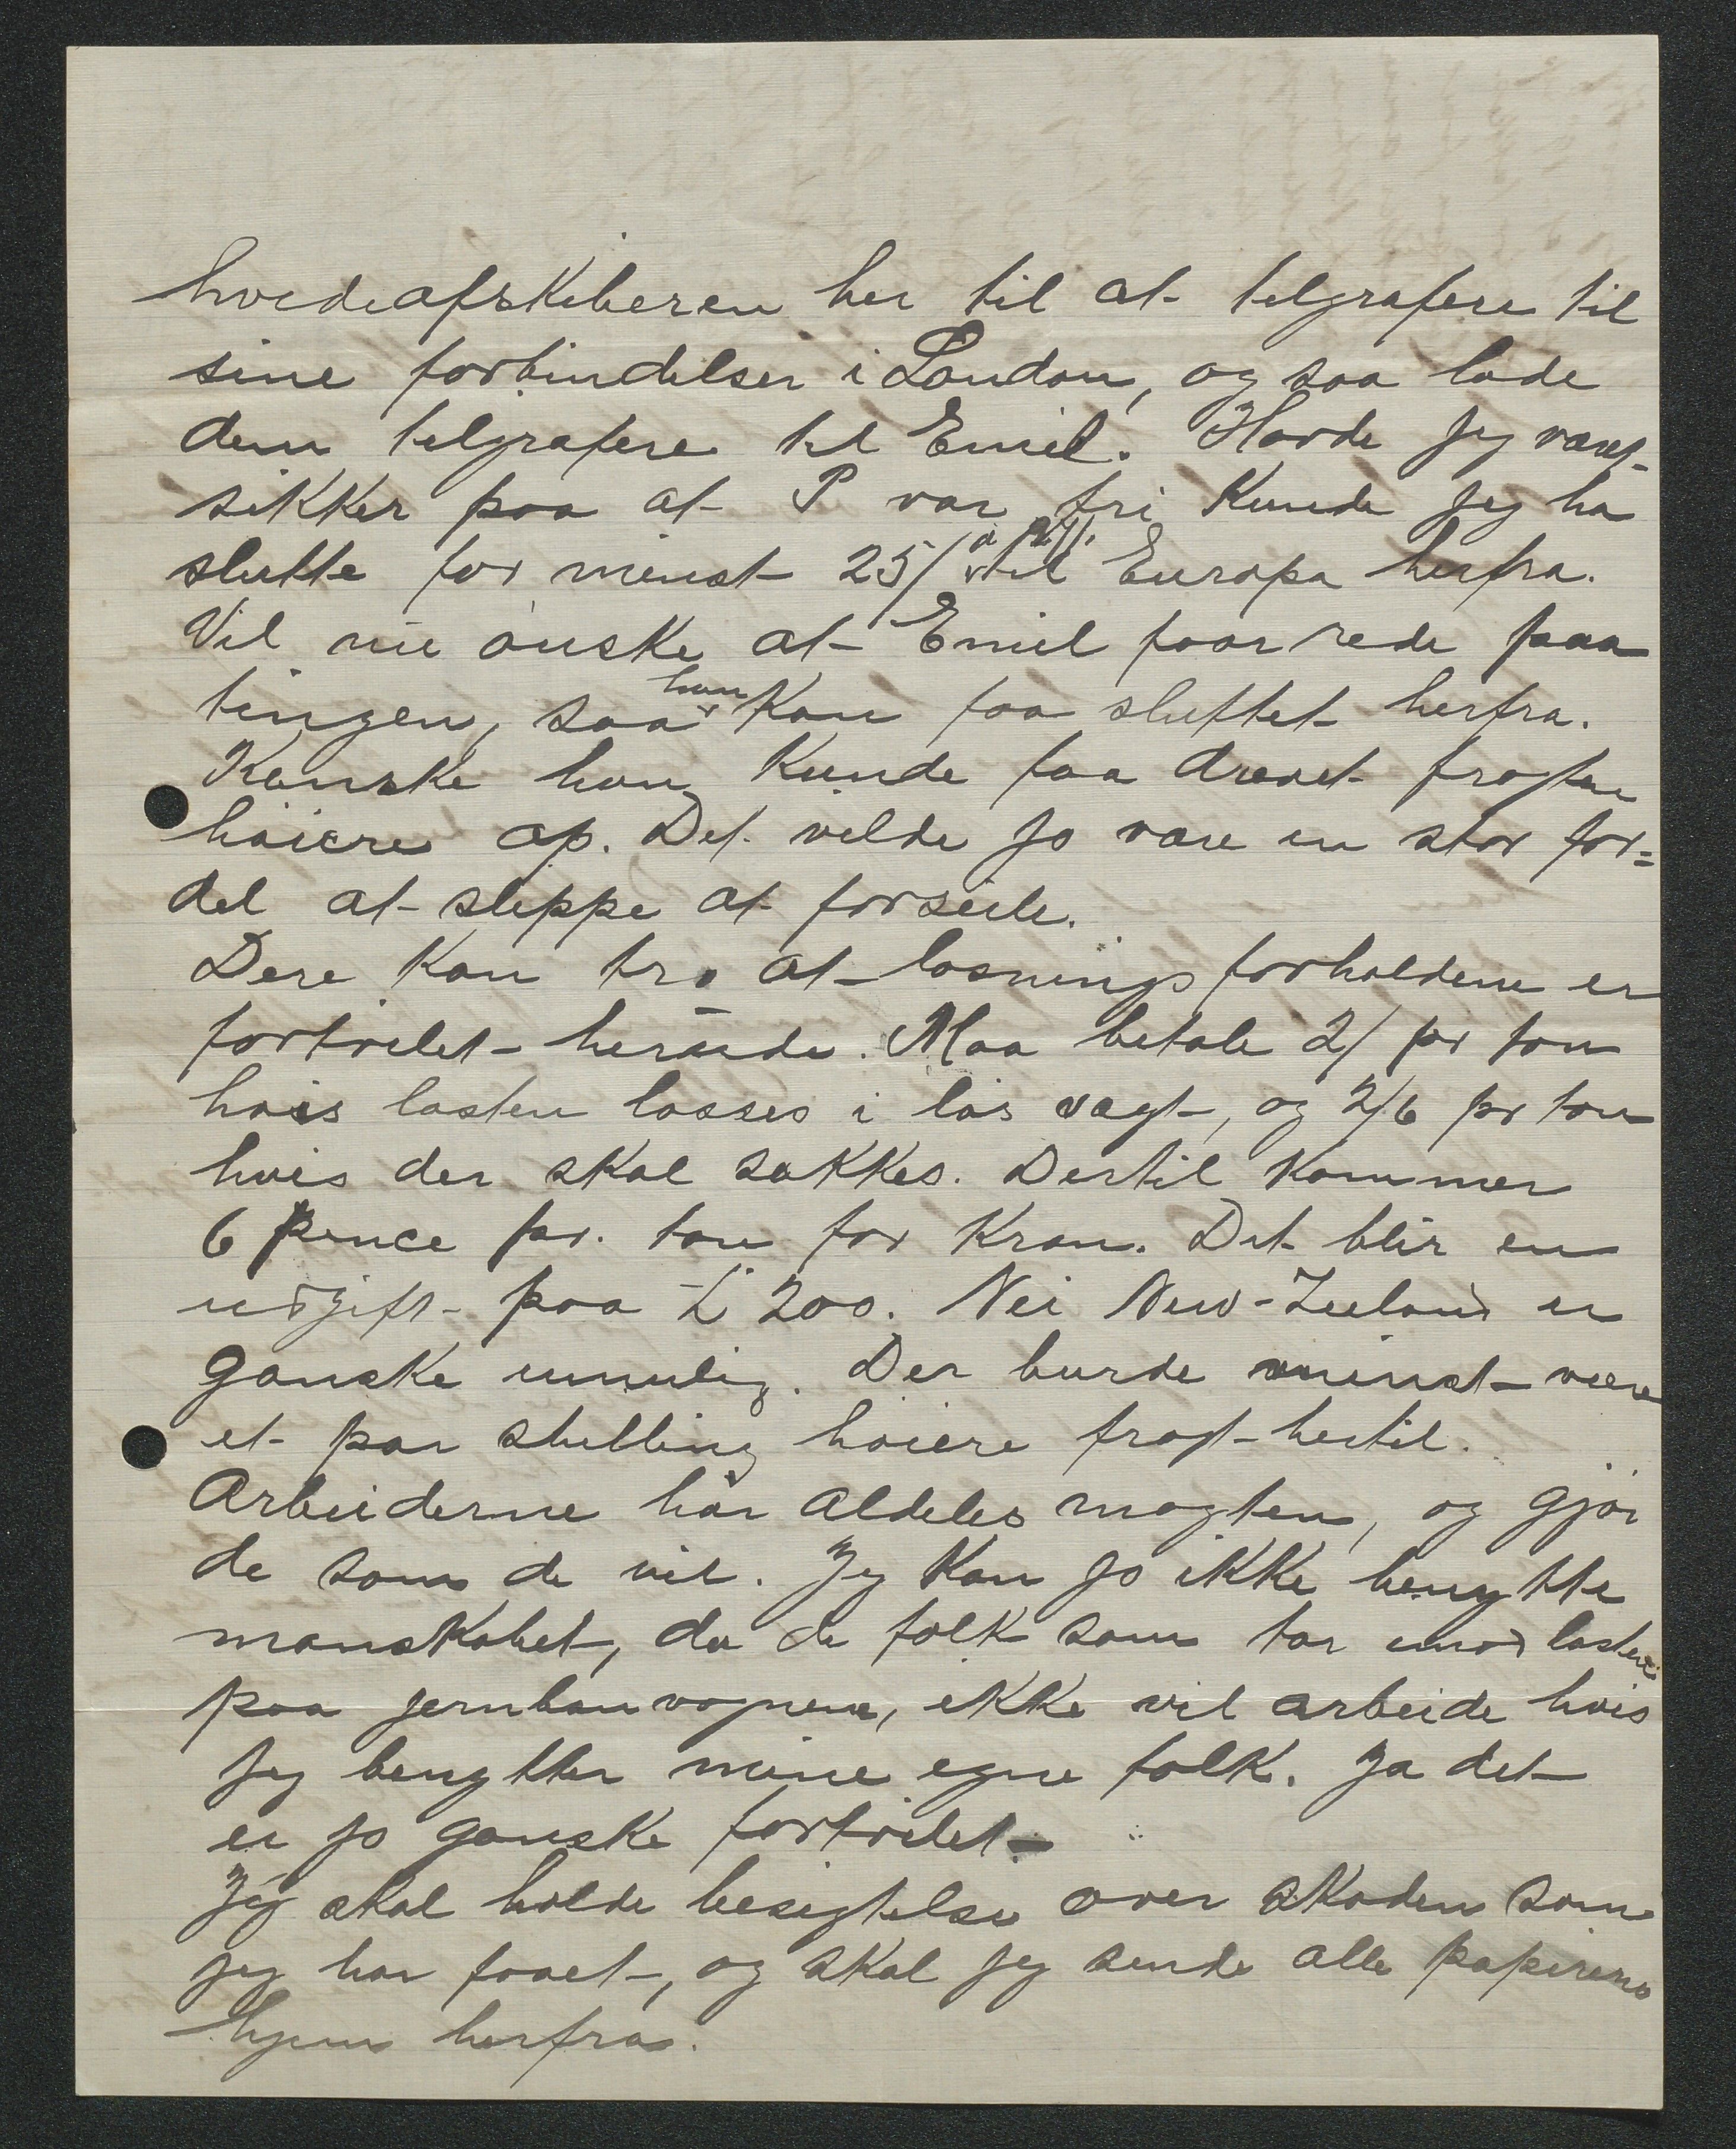 hvedeafskiberen her til at telgrafere til
sine forbindelser i London, og saa lade
dem telgrafere til Emil. Havde jeg været
sikker paa at P var fri kunde jeg ha
slutte for minst 25/ til Europa herfra.
Vil nu ønske at Emil faar rede paa
tingen, saa han kan faa sluttet herfra.
Kanske han kunde faa drevet fragten
høiere op. Det vilde jo være en stor for=
del at slippe at forseile.
Dere kan tro at losningsforholdene er
fortvilet herude. Maa betale 2/ pr ton
hvis lasten losses i løs vægt, og 2/6 pr ton
hvis der skal sækkes. Dertil kommer
6 pence pr. ton for Kran. Det blir en
udgift paa £ 200. Nei New-Zeeland er
ganske umulig. Der burde minst være
et par shilling høiere fragt hertil.
Arbeiderne har aldeles magten, og gjør
de som de vil. Jeg kan jo ikke benytte
manskabet, da de folk som tar imod lasten
paa jernbanvognene, ikke vil arbeide hvis
jeg benytter mine egne folk. Ja det
er jo ganske fortvilet
Jeg skal holde besigtelse over skaden som
jeg har faaet, og skal jeg sende alle papirerne
hjem herfra.